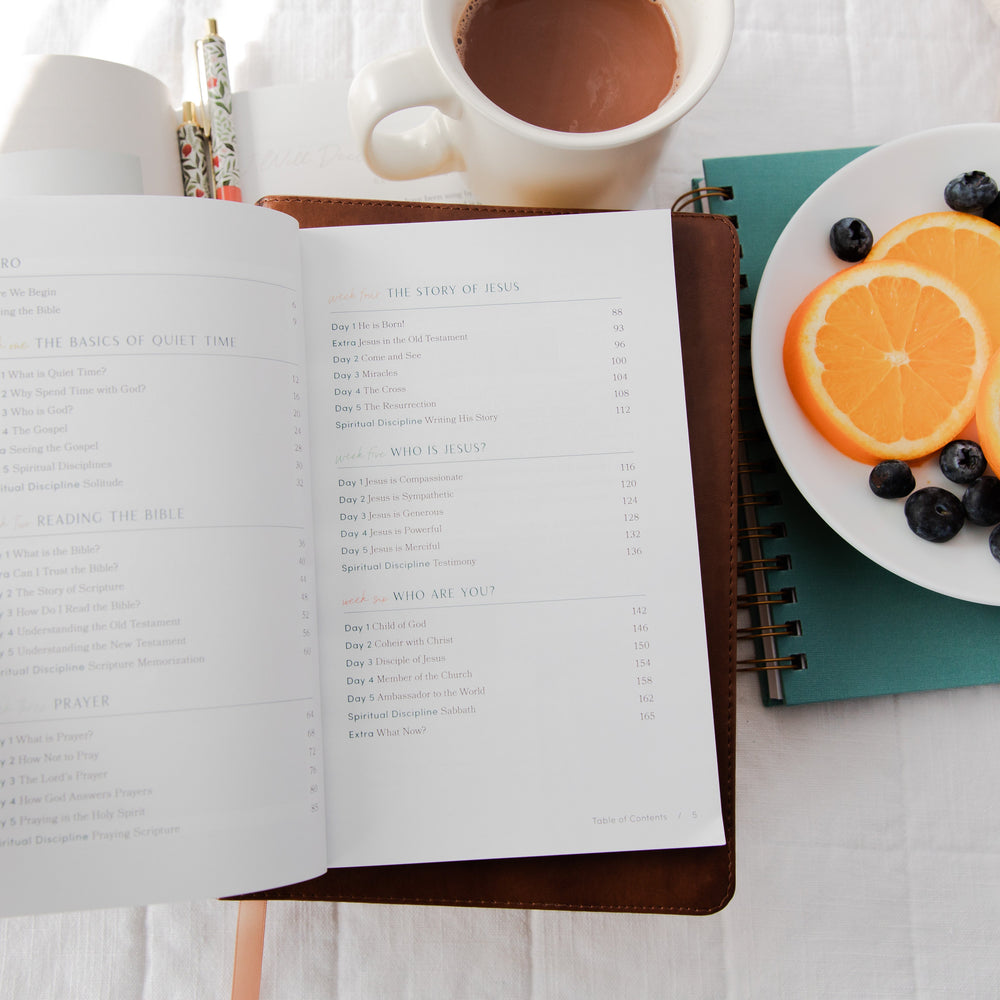 Well
RO
re We Begin 6
ing the Bible 9
THE BASICS OF QUIET TIME
1 What is Quiet Time? 12
2 Why Spend Time with God? 16
3 Who is God? 20
4 The Gospel 24
a Seeing the Gospel 28
5 Spiritual Disciplines 30
itual Discipline Solitude 32
READING THE BIBLE
y 1 What is the Bible? 36
ra Can I Trust the Bible? 40
y 2 The Story of Scripture 44
y 3 How Do I Read the Bible? 48
y 4 Understanding the Old Testament 52
y 5 Understanding the New Testament 56
ritual Discipline Scripture Memorization 60
PRAYER
y 1 What is Prayer? 64
y 2 How Not to Pray 68
y 3 The Lord's Prayer 72
y 4 How God Answers Prayers 76
y 5 Praying in the Holy Spirit 80
iritual Discipline Praying Scripture 85
week four THE STORY OF JESUS
Day 1 He is Born! 88
Extra Jesus in the Old Testament 93
Day 2 Come and See 96
Day 3 Miracles 100
Day 4 The Cross 104
Day 5 The Resurrection 108
Spiritual Discipline Writing His Story 112
week five WHO IS JESUS?
Day 1 Jesus is Compassionate 116
Day 2 Jesus is Sympathetic 120
Day 3 Jesus is Generous 124
Day 4 Jesus is Powerful 128
Day 5 Jesus is Merciful 132
Spiritual Discipline Testimony 136
week six WHO ARE YOU?
Day 1 Child of God 142
Day 2 Coheir with Christ 146
Day 3 Disciple of Jesus 150
Day 4 Member of the Church 154
Day 5 Ambassador to the World 158
Spiritual Discipline Sabbath 162
Extra What Now? 165
Table of Contents / 5